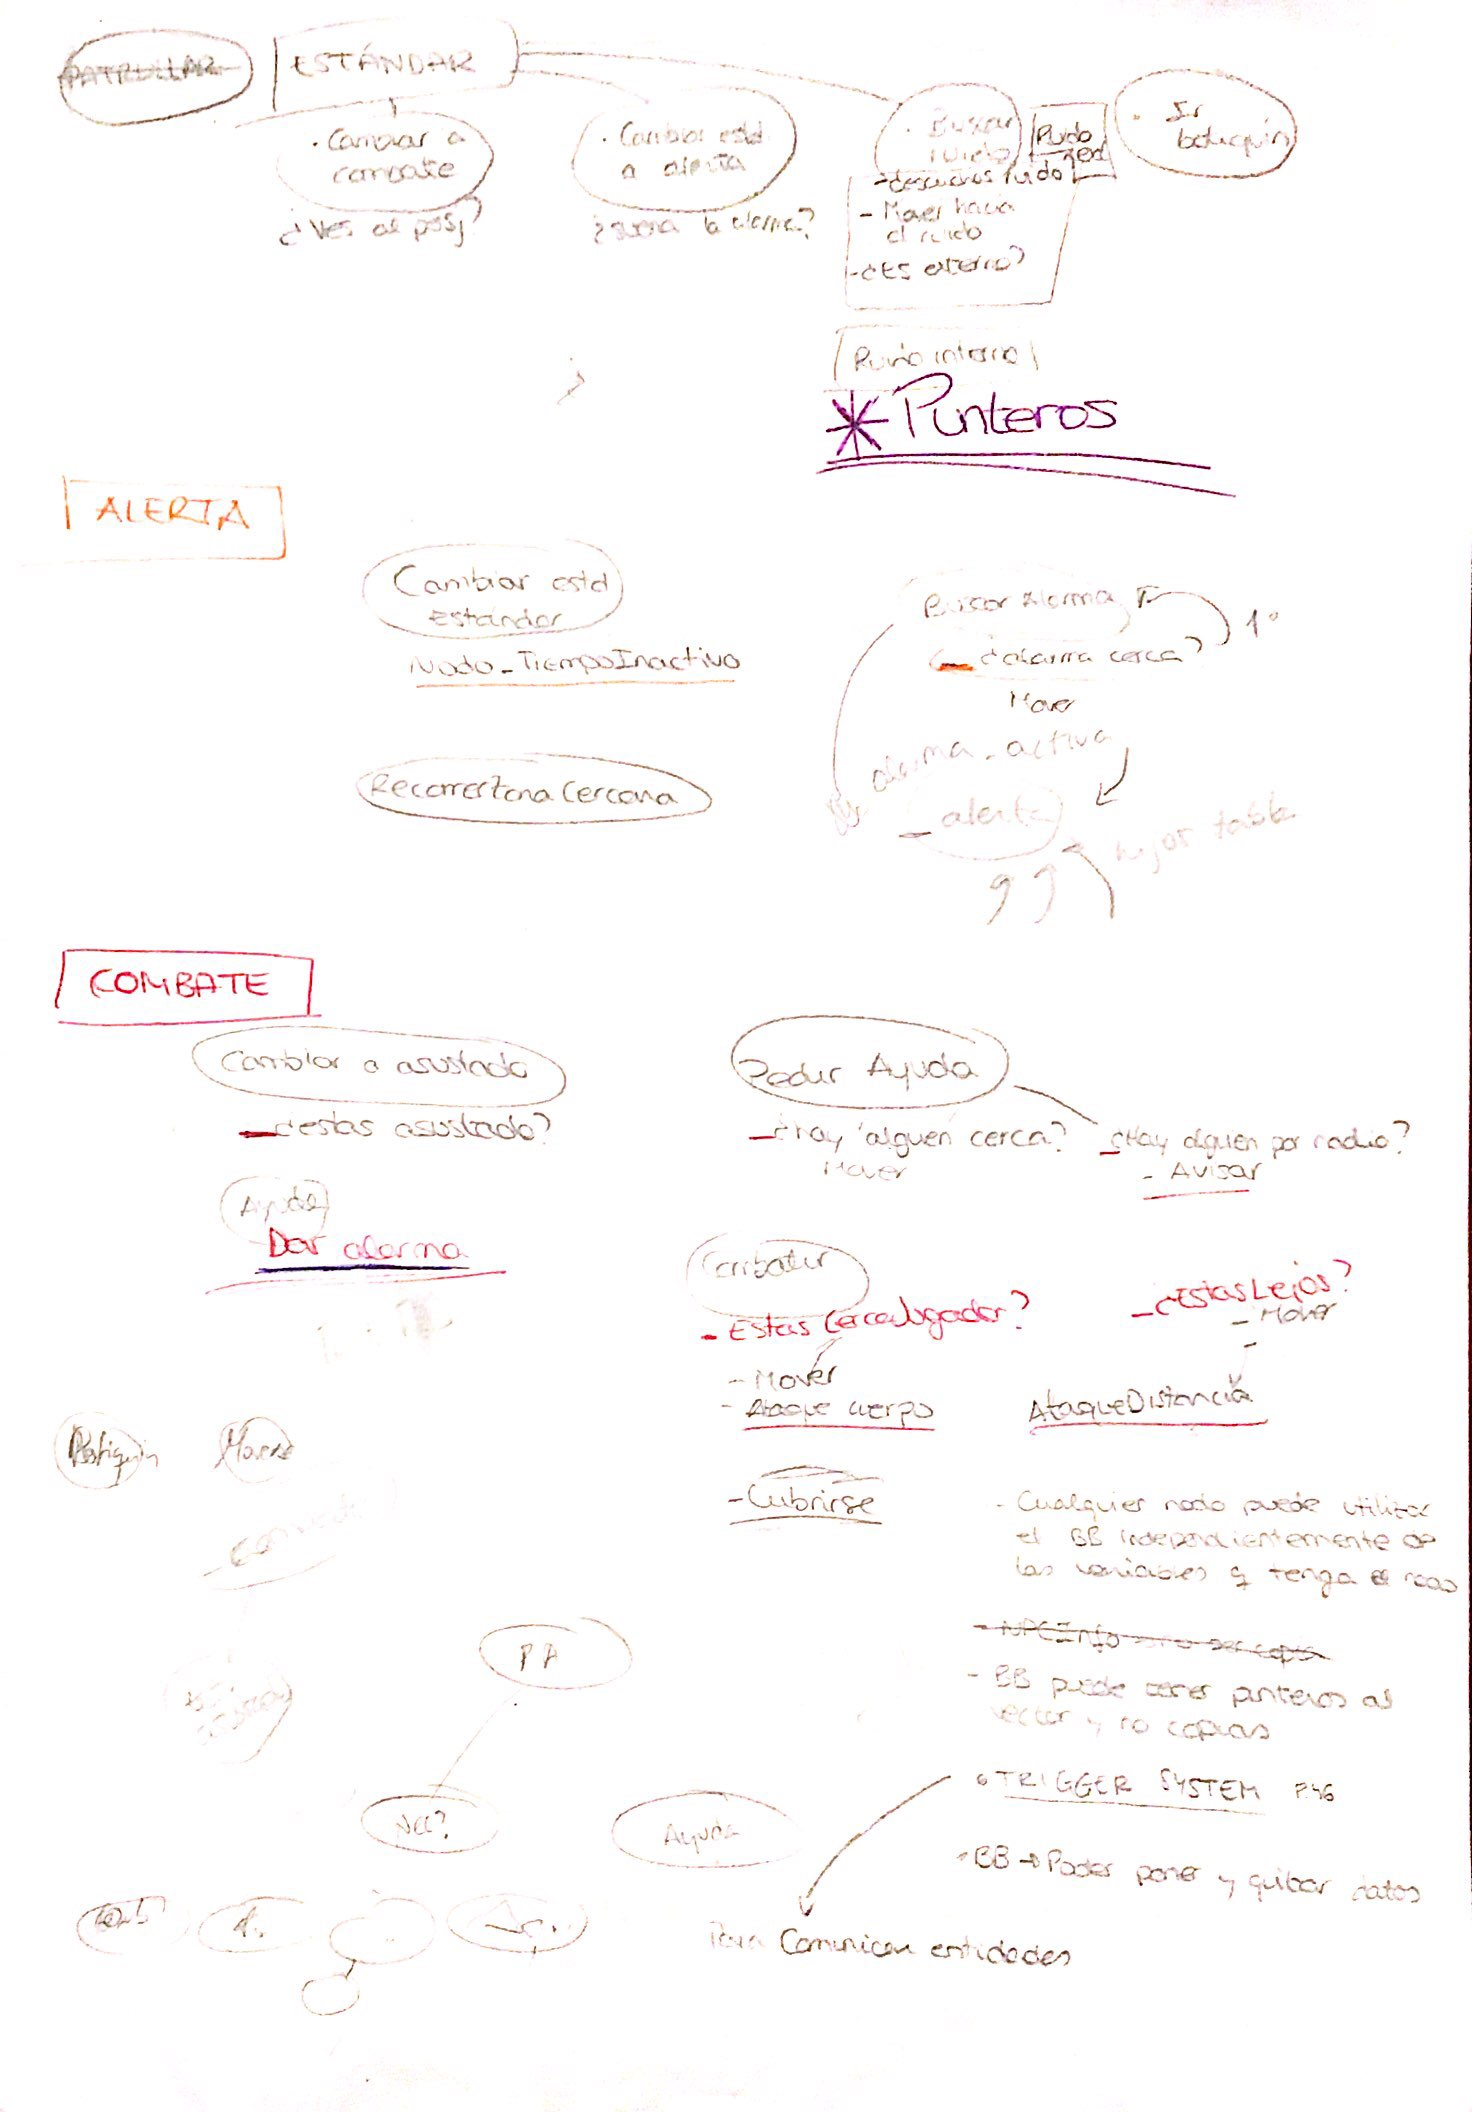 PATRULLAR
ESTÁNDAR
· Cambiar a
combate
¿Ves al pers?
· Cambiar estd
a alerta
¿suena la alarma?
· Buscar
ruido
Ruido
ext
- ¿escuchas ruido
- Mover hacia
el ruido
- ¿Es externo?
· Ir
botiquín
Ruido interno
* Punteros
ALERTA
Cambiar estd
estándar
Nodo_TiempoInactivo
RecorrerZonaCercana
Buscar Alarma
1º
_ ¿alarma cerca?
Mover
alarma_activa
_ alerta
COMBATE
Cambiar a asustado
_ ¿estas asustado?
Ayuda
Dar alarma
Pedir Ayuda
_ ¿Hay alguien cerca?
Mover
_ ¿Hay alguien por radio?
- Avisar
Combatir
- Estas CercaJugador?
- Mover
- Ataque cuerpo
_ ¿EstasLejos?
- Mover
-
AtaqueDistancia
- Cubrirse
Botiquin
Moverse
- Cualquier nodo puede utilizar
el BB independientemente de
las variables q tenga el nodo
- BB puede tener punteros al
vector y no copias
TRIGGER SYSTEM P.46
· BB → Poder poner y quitar datos
Para Comunicar entidades
PA
Ayuda